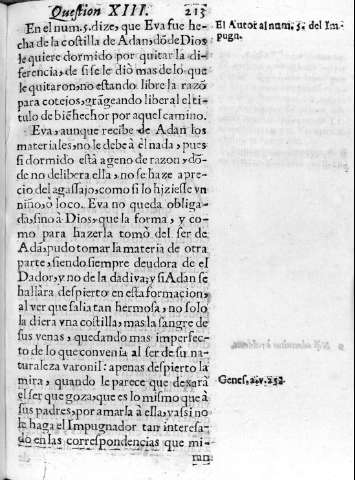 Question XIII. 213
En el num. 5. dize, que Eva fue he-
cha de la costilla de Adan, dõde Dios
le quiere dormido por quitar la di-
ferencia, de si se le diò mas de lo que
le quitaron, no estando libre la razõ
para cotejos, grãgeando liberal el ti-
tulo de biẽhechor por aquel camino.
Eva, aunque recibe de Adan los
materiales, no le debe à èl nada, pues
si dormido està ageno de razon, dõ-
de no delibera ella, no se haze apre-
cio del agassajo, como si lo hiziesse vn
niño, ò loco. Eva no queda obliga-
da, sino à Dios, que la forma, y co-
mo para hazerla tomò del ser de
Adã, pudo tomar la materia de otra
parte, siendo siempre deudora de el
Dador, y no de la dadiva; y si Adan se
hallàra despierto en esta formacion,
al ver que salia tan hermosa, no solo
la diera vna costilla, mas la sangre de
sus venas, quedando mas imperfec-
to de lo que convenia al ser de su na-
turaleza varonil: apenas despierto la
mira, quando le parece que dexarà
el ser que goza, que es lo mismo que à
sus padres, por amarla à ella, y assi no
le haga el Impugnador tan interesa-
do en las correspondencias que mi-
ran
El Autor al num. 5. del Im-
pugn.
Genes. 2. v. 25.